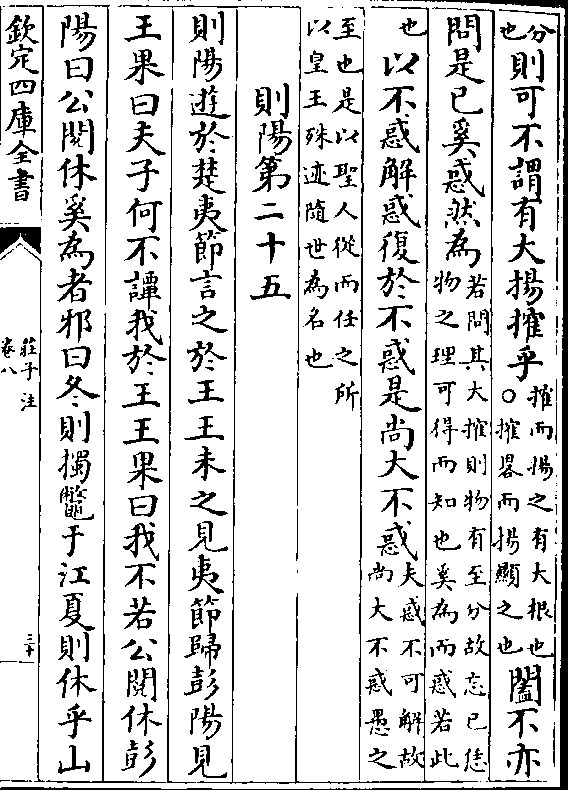 分也則可不謂有大揚搉乎搉而揚之有大根也○搉畧而揚顯之也闔不亦
問是已奚惑然為若問其大搉則物有至分故忘已恁物之理可得而知也奚為而惑若此
也以不惑解惑復於不惑是尚大不惑夫惑不可解故尚大不惑愚之
至也是以聖人從而任之所以皇王殊迹隨世為名也
則陽第二十五
則陽遊於楚夷節言之於王王未之見夷節歸彭陽見
王果曰夫子何不譚我於王王果曰我不若公閱休彭
陽曰公閱休奚為者邪曰冬則擉鼈于江夏則休乎山
欽定四庫全書
莊子注
卷八
三十